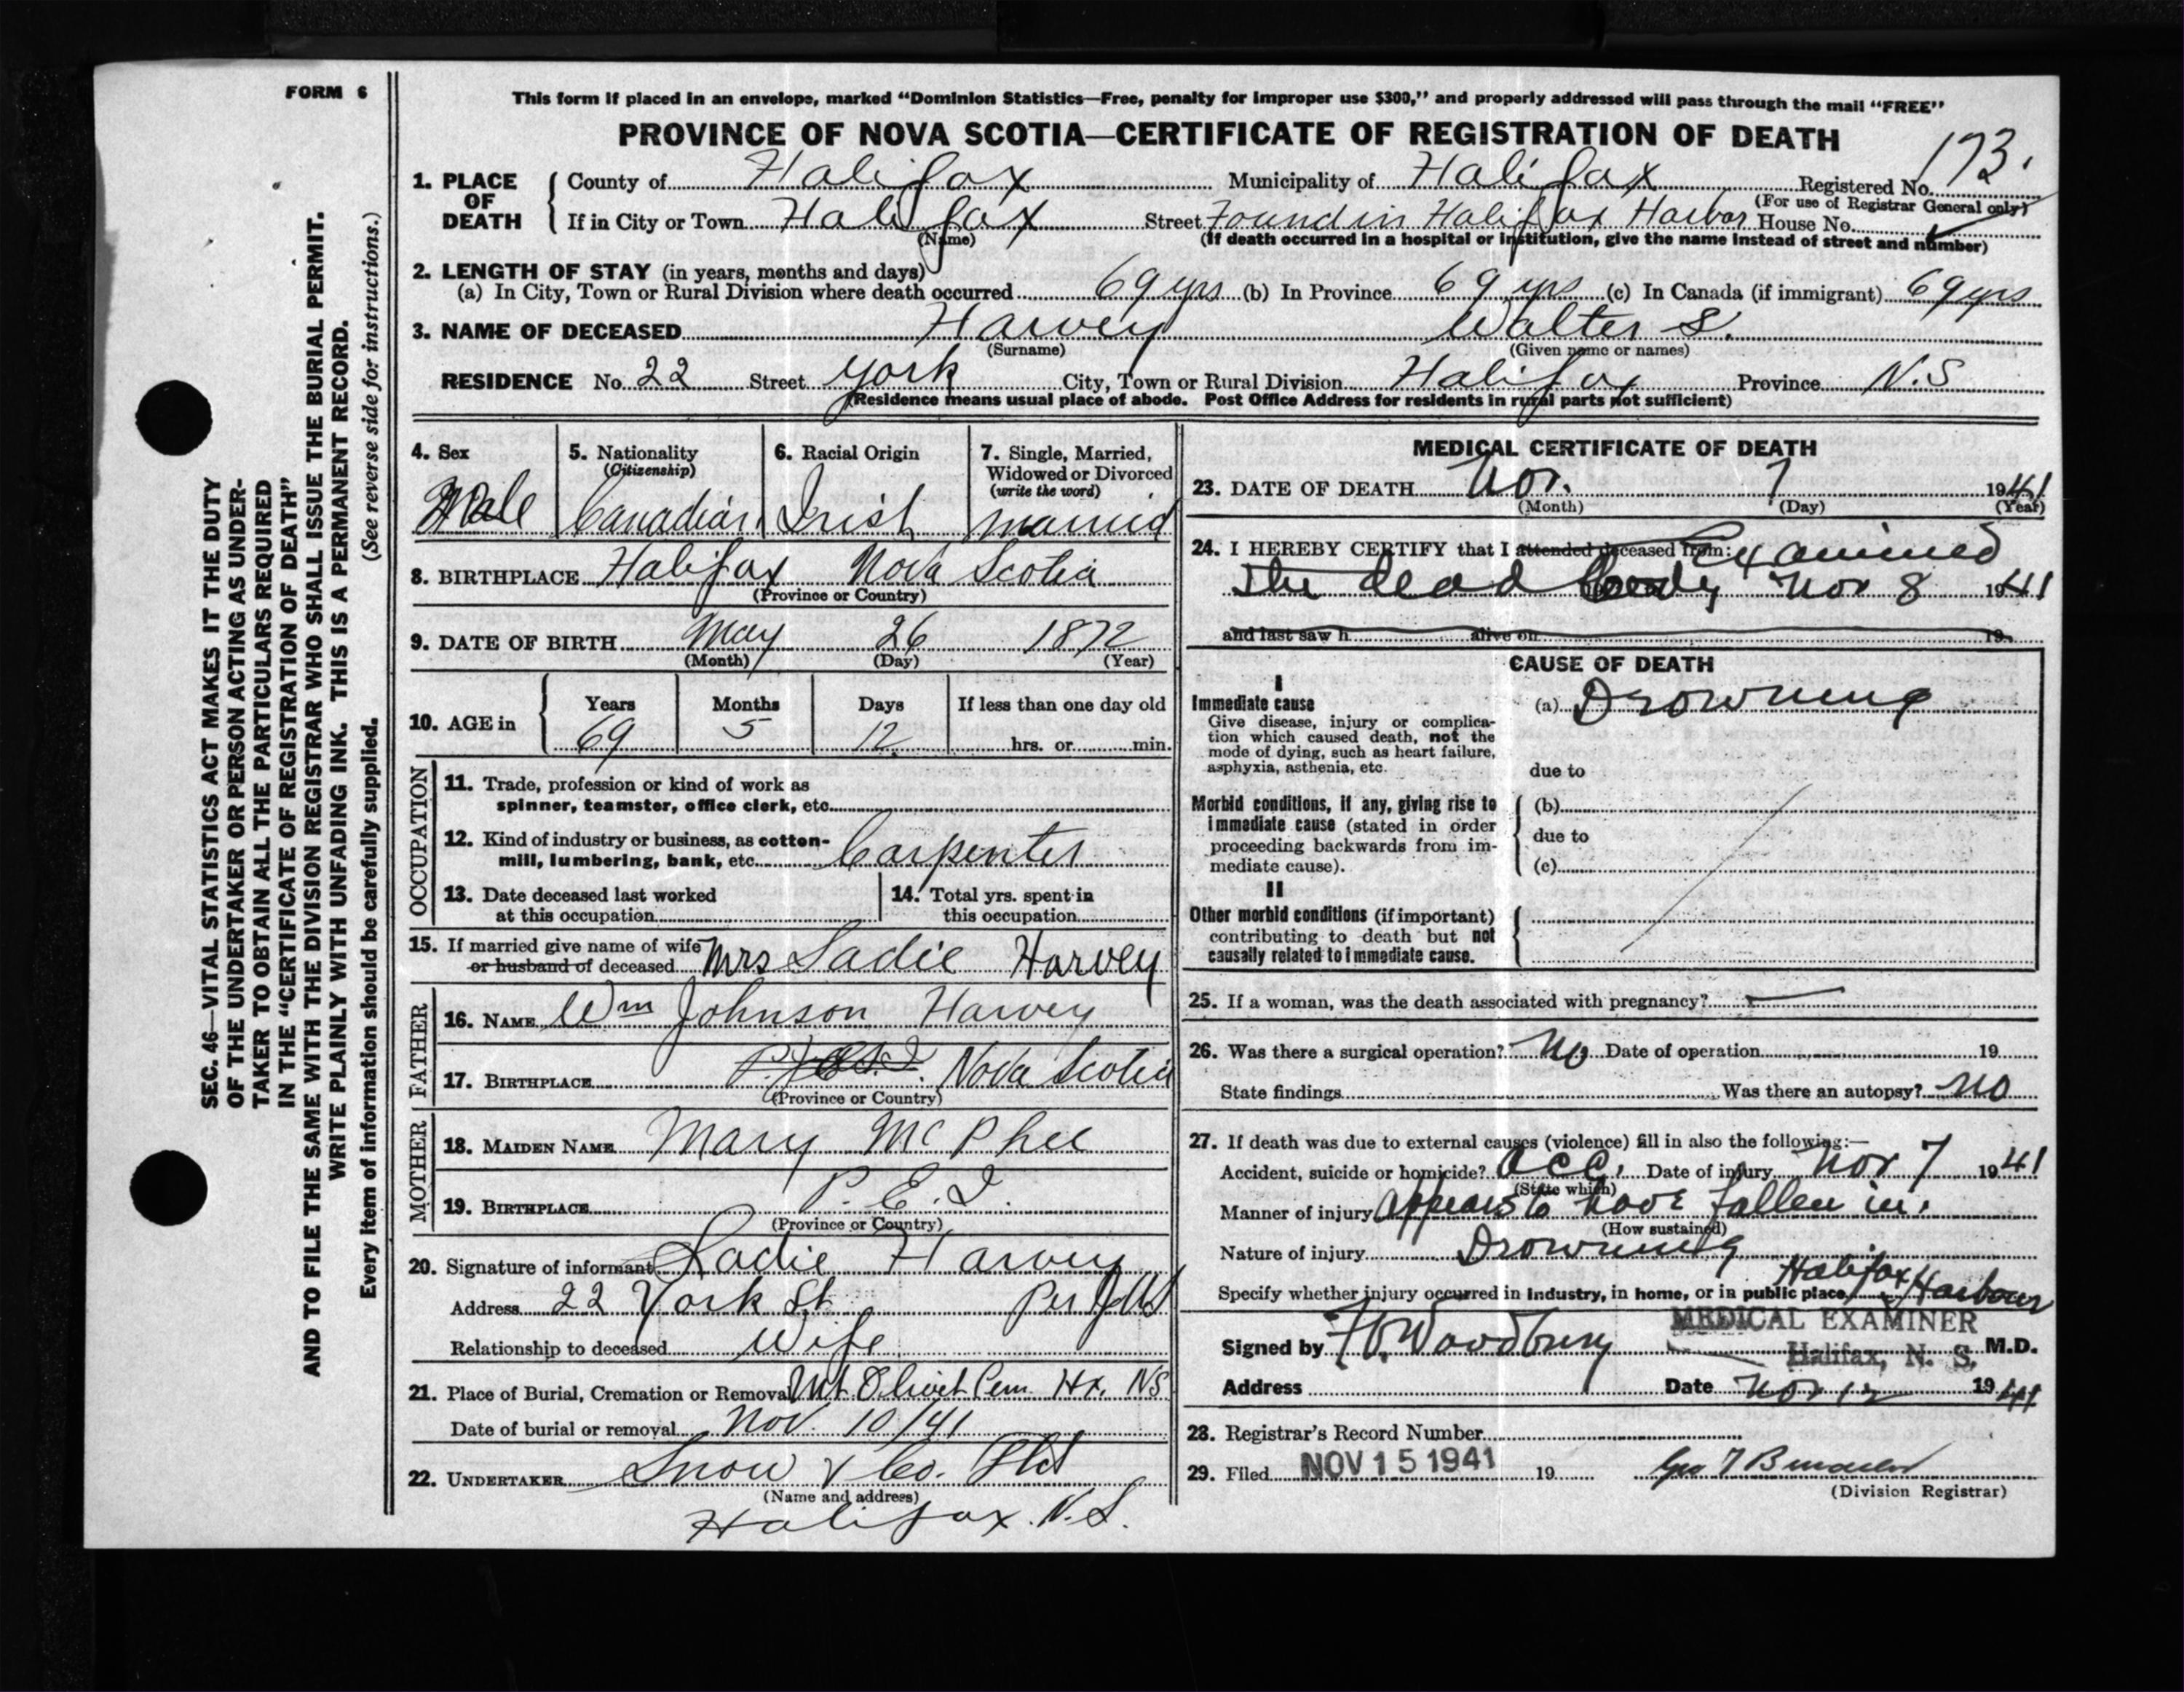 FORM 6
This form if placed in an envelope, marked "Dominion Statistics—Free, penalty for improper use $300," and properly addressed will pass through the mail "FREE"
PROVINCE OF NOVA SCOTIA—CERTIFICATE OF REGISTRATION OF DEATH
173.
1. PLACE OF DEATH County of Halifax Municipality of Halifax Registered No.
(For use of Registrar General only)
If in City or Town Halifax Street Found in Halifax Harbor House No.
(Name) (If death occurred in a hospital or institution, give the name instead of street and number)
2. LENGTH OF STAY (in years, months and days)
(a) In City, Town or Rural Division where death occurred 69 yrs (b) In Province 69 yrs (c) In Canada (if immigrant) 69 yrs
3. NAME OF DECEASED Harvey Walter S.
(Surname) (Given name or names)
RESIDENCE No. 22 Street York City, Town or Rural Division Halifax Province N.S
(Residence means usual place of abode. Post Office Address for residents in rural parts not sufficient)
4. Sex
Male
5. Nationality
(Citizenship)
Canadian
6. Racial Origin
Irish
7. Single, Married,
Widowed or Divorced
(write the word)
Married
8. BIRTHPLACE Halifax Nova Scotia
(Province or Country)
9. DATE OF BIRTH May 26 1872
(Month) (Day) (Year)
10. AGE in
Years Months Days If less than one day old
69 5 12 hrs. or min.
OCCUPATION
11. Trade, profession or kind of work as
spinner, teamster, office clerk, etc.
12. Kind of industry or business, as cotton-
mill, lumbering, bank, etc. Carpenter
13. Date deceased last worked
at this occupation
14. Total yrs. spent in
this occupation
15. If married give name of wife
or husband of deceased Mrs Sadie Harvey
FATHER
16. NAME Wm Johnson Harvey
17. BIRTHPLACE Nova Scotia
(Province or Country)
MOTHER
18. MAIDEN NAME Mary McPhee
19. BIRTHPLACE P.E.I.
(Province or Country)
20. Signature of informant Sadie Harvey
Address 22 York St Per
Relationship to deceased Wife
21. Place of Burial, Cremation or Removal Mt Olivet Cem Hx. NS
Date of burial or removal Nov. 10/41
22. UNDERTAKER Snow & Co. Ltd
(Name and address)
Halifax. N.S.
MEDICAL CERTIFICATE OF DEATH
23. DATE OF DEATH Nov. 7 1941
(Month) (Day) (Year)
24. I HEREBY CERTIFY that I attended deceased from: Examined
the dead body Nov 8 1941
and last saw h alive on 19
CAUSE OF DEATH
I
Immediate cause
Give disease, injury or complica-
tion which caused death, not the
mode of dying, such as heart failure,
asphyxia, asthenia, etc.
(a) Drowning
due to
Morbid conditions, if any, giving rise to
immediate cause (stated in order
proceeding backwards from im-
mediate cause).
(b)
due to
(c)
II
Other morbid conditions (if important)
contributing to death but not
causally related to immediate cause.
25. If a woman, was the death associated with pregnancy?
26. Was there a surgical operation? No Date of operation 19
State findings Was there an autopsy? No
27. If death was due to external causes (violence) fill in also the following:—
Accident, suicide or homicide? Acc. Date of injury Nov 7 1941
(State which)
Manner of injury Appears to have fallen in.
(How sustained)
Nature of injury Drowning
Specify whether injury occurred in industry, in home, or in public place Halifax Harbour
MEDICAL EXAMINER
Signed by Woodbury Halifax, N. S. M.D.
Address Date Nov 12 1941
28. Registrar's Record Number
29. Filed NOV 15 1941 19
(Division Registrar)
SEC. 46—VITAL STATISTICS ACT MAKES IT THE DUTY
OF THE UNDERTAKER OR PERSON ACTING AS UNDER-
TAKER TO OBTAIN ALL THE PARTICULARS REQUIRED
IN THE "CERTIFICATE OF REGISTRATION OF DEATH"
AND TO FILE THE SAME WITH THE DIVISION REGISTRAR WHO SHALL ISSUE THE BURIAL PERMIT.
WRITE PLAINLY WITH UNFADING INK. THIS IS A PERMANENT RECORD.
Every item of information should be carefully supplied. (See reverse side for instructions.)